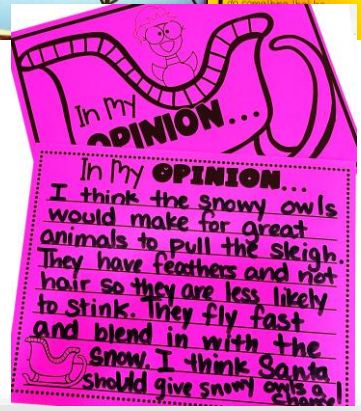 In My
OPINION...
In My OPINION...
I think the snowy owls
would make for great
animals to pull the sleigh.
They have feathers and not
hair so they are less likely
to stink. They fly fast
and blend in with the
snow. I think Santa
should give snowy owls a
chance!